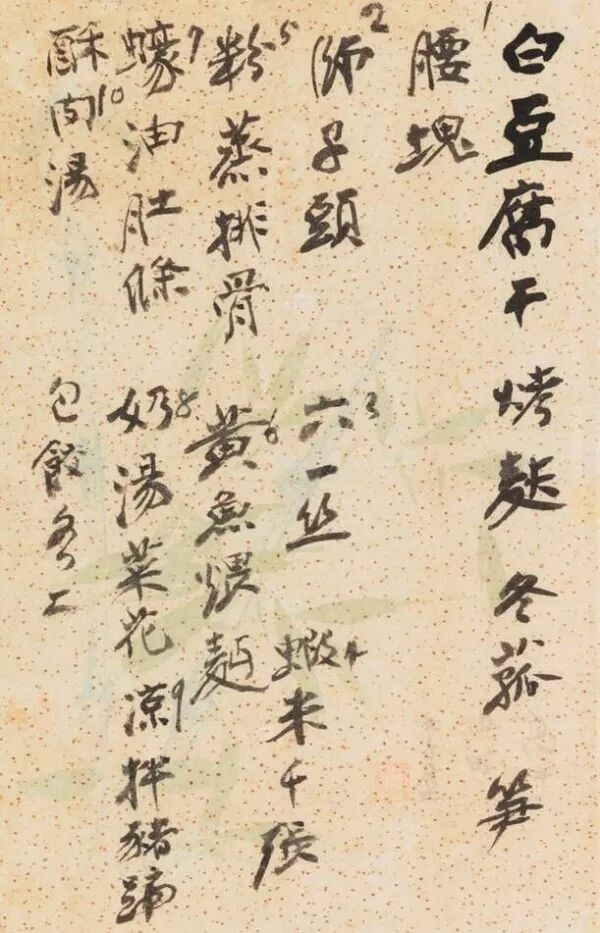 白豆腐干 烤麩 冬菰 笋
1 腰塊
2 師子頭 3 六一丝 4 蝦米千張
5 粉蒸排骨 6 黄魚煨麵
7 蠔油肚條 8 奶湯菜花 9 凉拌豬蹄
10 酥肉湯 包餃各